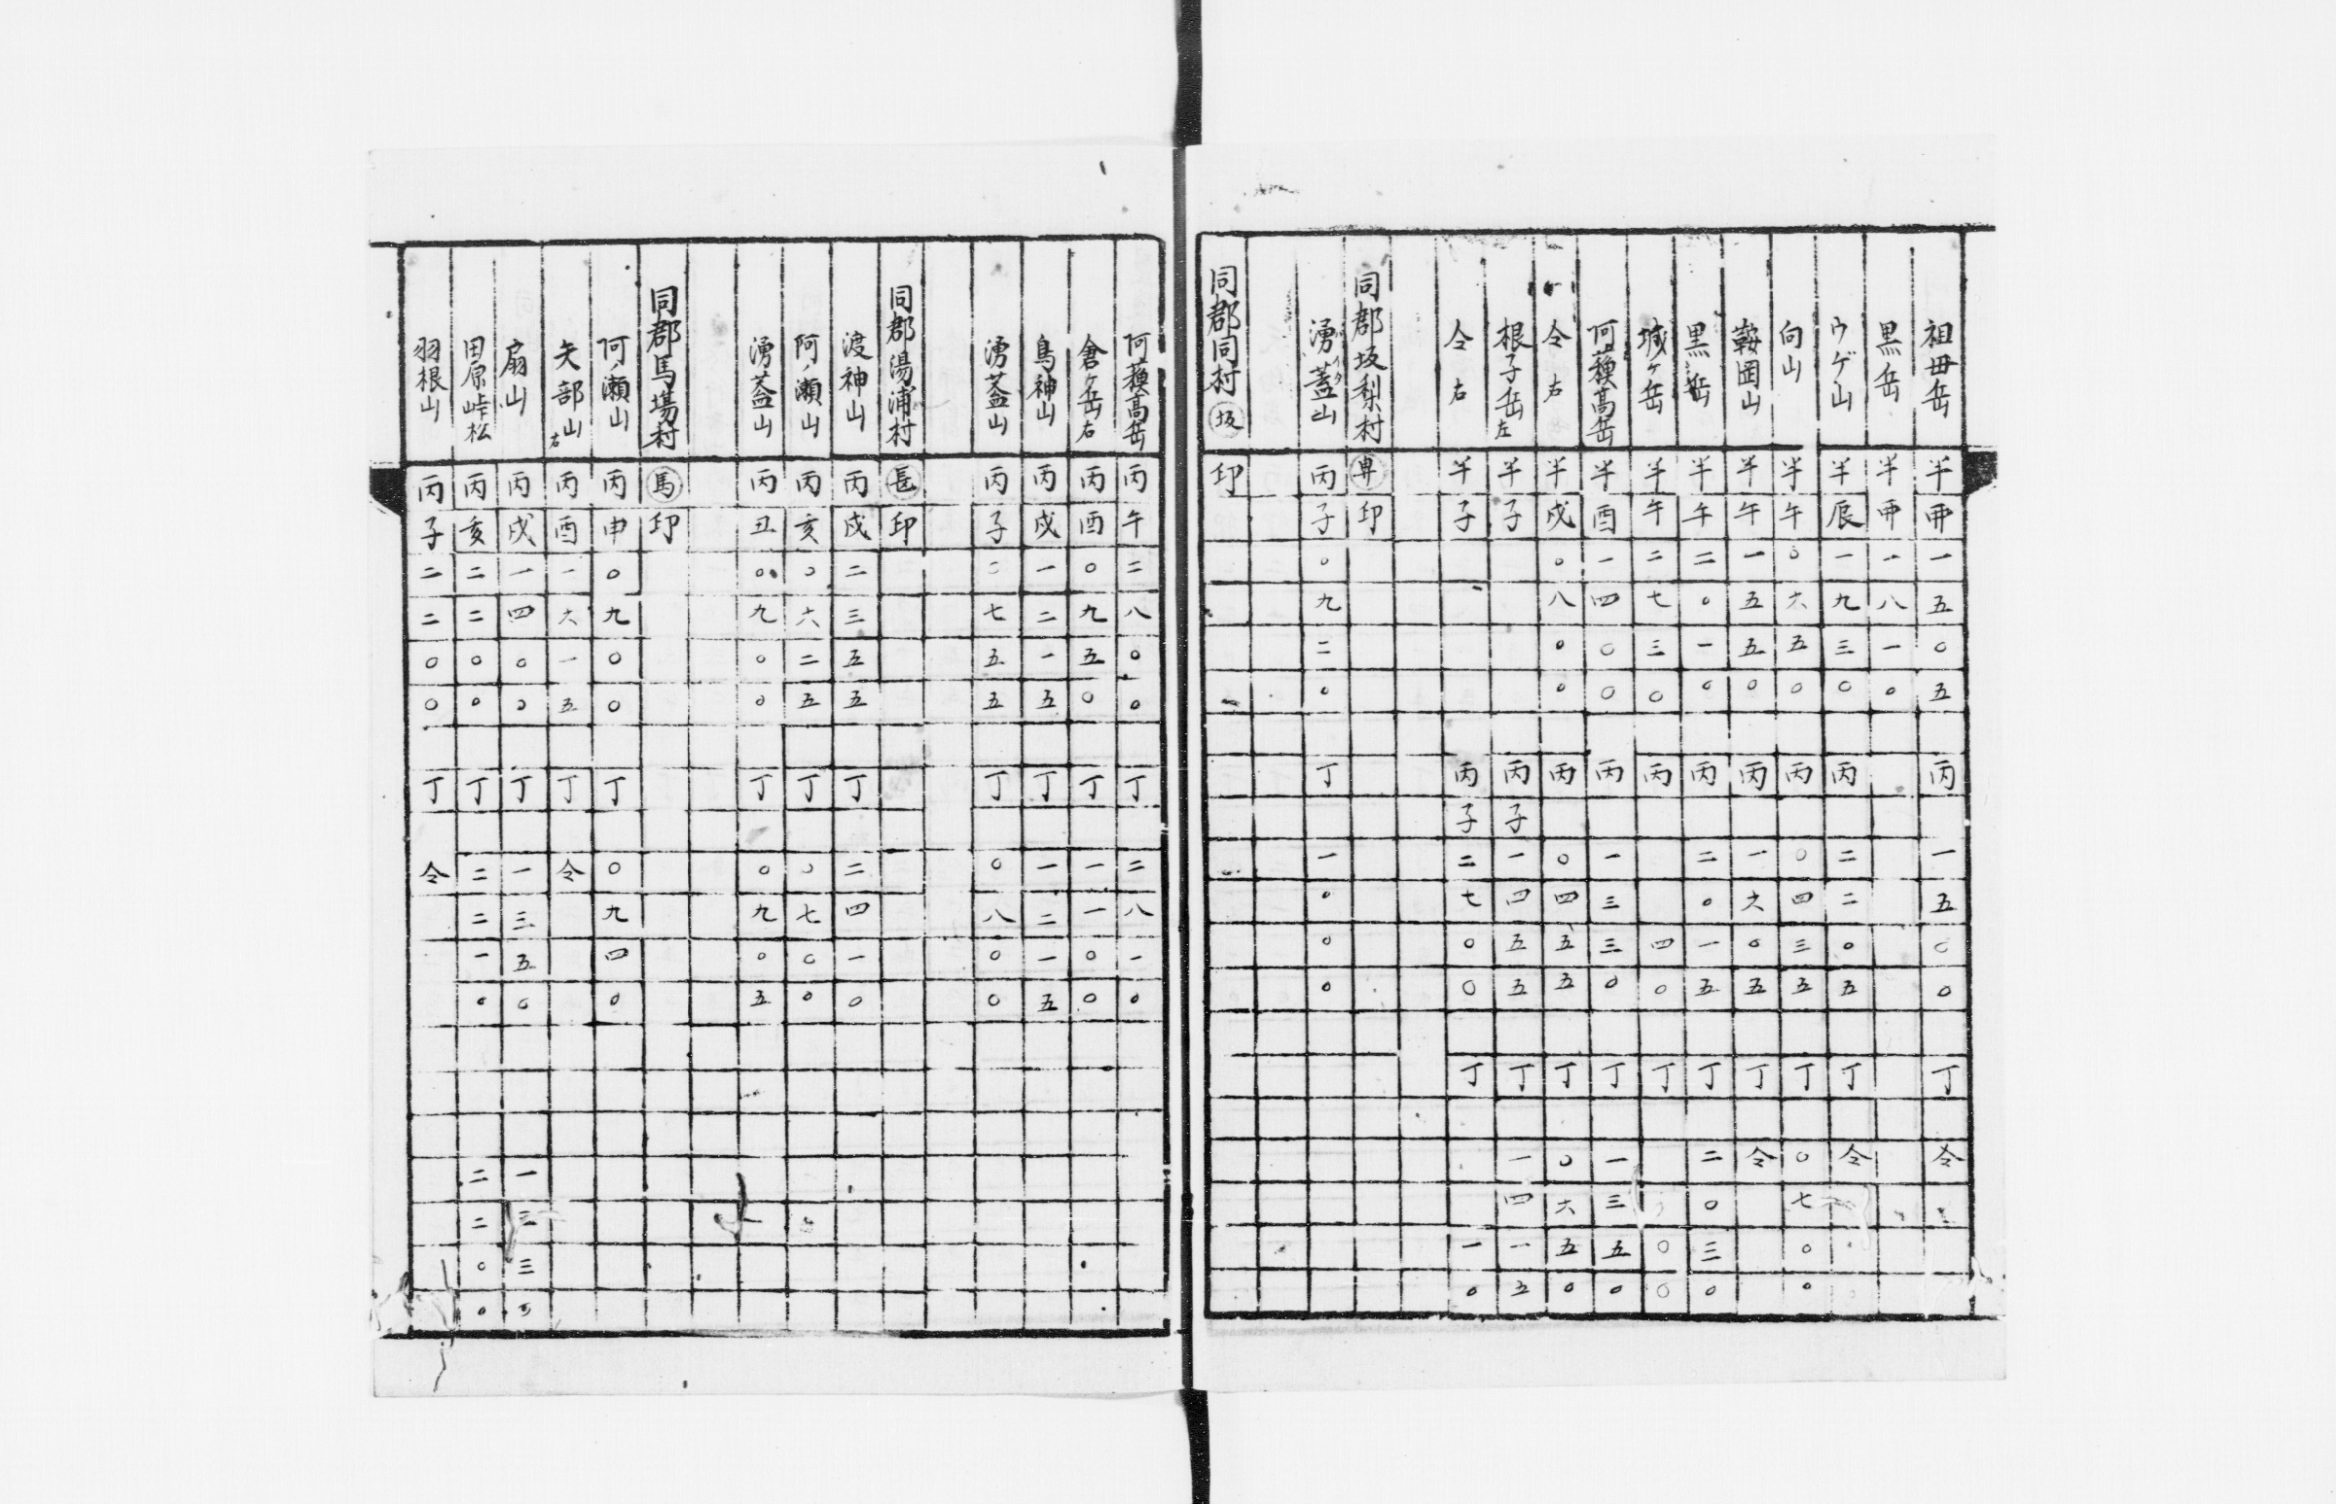 祖母岳 半 丣 一 五 〇 五 丙 一 五 〇 〇 丁 仝
黒岳 半 丣 一 八 一 〇
ウゲ山 半 辰 一 九 三 〇 丙 二 二 〇 五 丁 仝
向山 半 午 〇 六 五 〇 丙 〇 四 三 五 丁 〇 七 〇 〇
鞍岡山 半 午 一 五 五 〇 丙 一 六 〇 五 丁 仝
黒岳 半 午 二 〇 一 〇 丙 二 〇 一 五 丁 二 〇 三 〇
城ヶ岳 半 午 二 七 三 〇 丙 四 〇 丁 〇 〇
阿蘓高岳 半 酉 一 四 〇 〇 丙 一 三 三 〇 丁 一 三 五 〇
仝 右 半 戌 〇 八 〇 〇 丙 〇 四 五 五 丁 〇 六 五 〇
根子岳左 半 子 丙 子 一 四 五 五 丁 一 四 一 五
仝 右 半 子 丙 子 二 七 〇 〇 丁 一 〇
同郡坂梨村 印
湧蓋山 丙 子 〇 九 二 〇 丁 一 〇 〇 〇
同郡同村 坂 印
阿蘓高岳 丙 午 二 八 〇 〇 丁 二 八 一 〇
倉ヶ岳右 丙 酉 〇 九 五 〇 丁 一 一 〇 〇
鳥神山 丙 戌 一 二 一 五 丁 一 二 一 五
湧蓋山 丙 子 〇 七 五 五 丁 〇 八 〇 〇
同郡湯浦村 長 印
渡神山 丙 戌 二 三 五 五 丁 二 四 一 〇
阿ノ瀬山 丙 亥 〇 六 二 五 丁 〇 七 〇 〇
湧蓋山 丙 丑 〇 九 〇 〇 丁 〇 九 〇 五
同郡馬場村 馬 印
阿ノ瀬山 丙 申 〇 九 〇 〇 丁 〇 九 四 〇
矢部山右 丙 酉 一 六 一 五 丁 仝
扇山 丙 戌 一 四 〇 〇 丁 一 三 五 〇 一 三 三
田原峠松 丙 亥 二 二 〇 〇 丁 二 二 一 〇 二 二 〇 〇
羽根山 丙 子 二 二 〇 〇 丁 仝